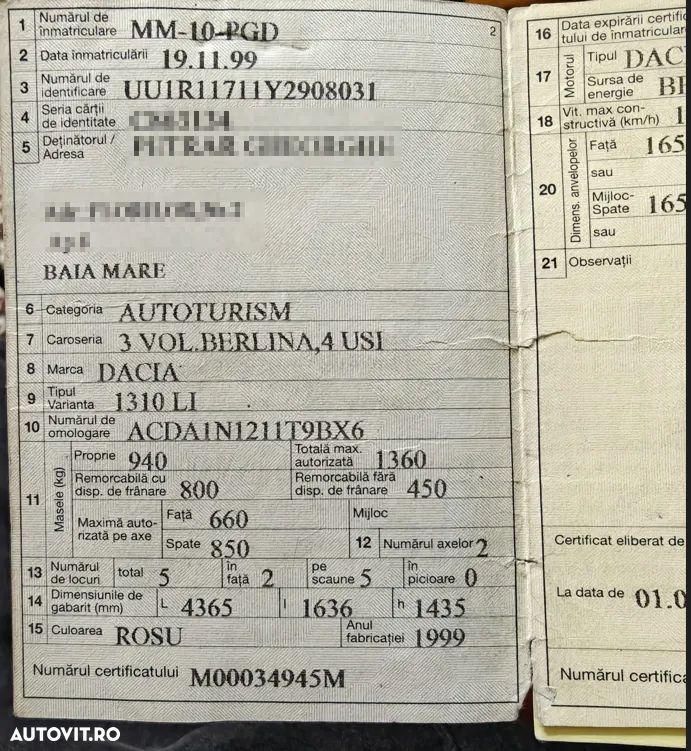 1 Numărul de înmatriculare MM-10-PGD 2
2 Data înmatriculării 19.11.99
3 Numărul de identificare UU1R11711Y2908031
4 Seria cărții de identitate
5 Deținătorul / Adresa
BAIA MARE
6 Categoria AUTOTURISM
7 Caroseria 3 VOL.BERLINA,4 USI
8 Marca DACIA
9 Tipul Varianta 1310 LI
10 Numărul de omologare ACDA1N1211T9BX6
11 Masele (kg)
Proprie 940 Totală max. autorizată 1360
Remorcabilă cu disp. de frânare 800 Remorcabilă fără disp. de frânare 450
Maximă autorizată pe axe Față 660 Mijloc
Spate 850 12 Numărul axelor 2
13 Numărul de locuri total 5 în față 2 pe scaune 5 în picioare 0
14 Dimensiunile de gabarit (mm) L 4365 l 1636 h 1435
15 Culoarea ROSU Anul fabricației 1999
Numărul certificatului M00034945M
16 Data expirării certifi
tului de înmatricular
17 Motorul Tipul DAC
Sursa de energie
18 Vit. max constructivă (km/h) 1
20 Dimens. anvelopelor Față 165
sau
Mijloc-Spate 165
sau
21 Observații
Certificat eliberat de
La data de 01.0
Numărul certifica
AUTOVIT.RO